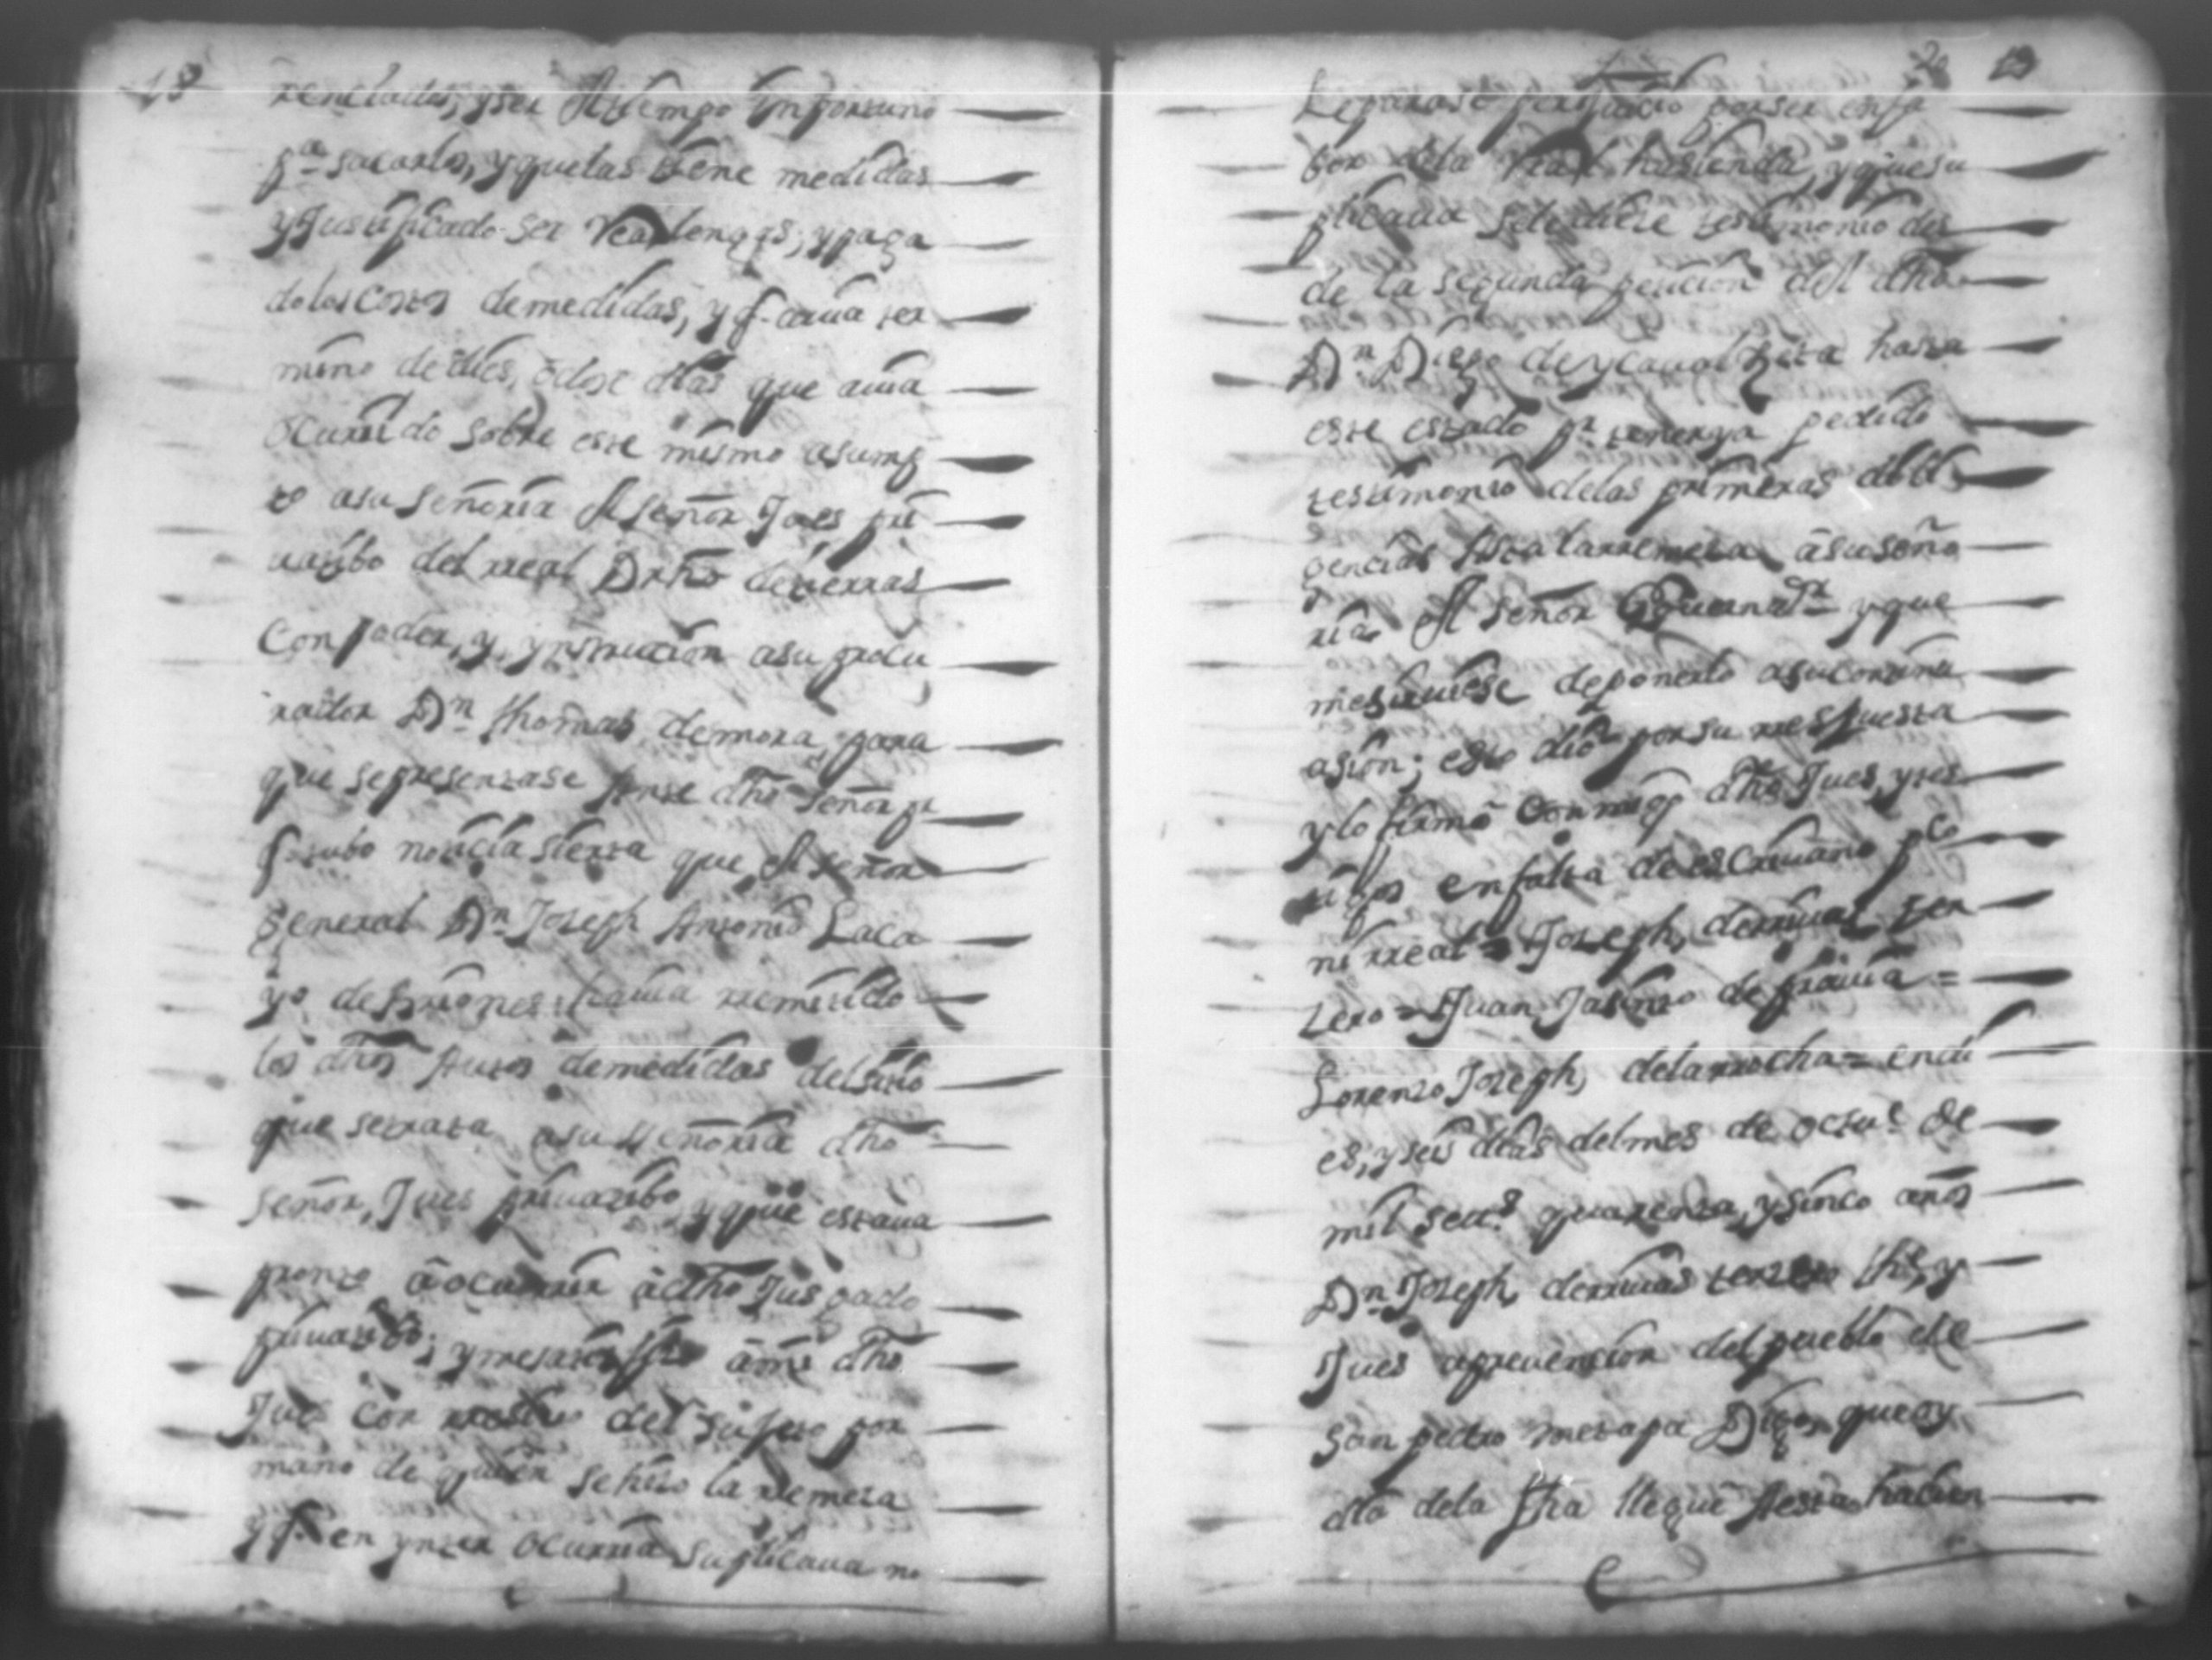 18
renciados, y ser El tiempo ynportuno
pª sacarlos, y que las tiene medidas
y Justificado ser realengas, y paga
do los costos de medidas, y q. auia ter
mino de dies, o dose dias que auia
Ocurrido sobre este mismo asump
to a su señoria El señor Jues pri
uatibo del rreal Drhõ de tierras
Con poder, y, ynstrucion a su procu
rador Dn thomas de mora, para
que se presentase Ante dho señor pr
q. tubo noticia sierta que El señor
General Dn Joseph Antonio Laca
yo de Briones hauia rremitido
los dhos Autos de medidas del sitio
que se trata a su señoria dho
señor, Jues priuatibo, y que estaua
pronto â ocurrir â dho Jusgado
priuatibo; y me satisfiso â mi dho
Jues con resibo del sujeto por
mano de quien se hiso la rremesa
y q. en ynter ocurria suplicaua no
20 19
Le parase perjuicio por ser en fa
bor de la real hasienda, y que su
plicaua se le diese testimonio des
de la segunda peticion del dho
Dn Diego de ycaualzeta hasta
este estado pr tener ya pedido
testimonio de las primeras dili
gencias hasta la rremesa â su seño
ria El señor Gouernador y que
me siruiese de ponerlo a su continu
asion; esto dio por su rrespuesta
y lo firmô conmigo dho Jues, y tes
tigos en falta de escriuano pco
ni rreal = Joseph, de rriuas ter
sero = Juan Jasinto de frauia =
Lorenzo Joseph, de la rrocha = en di
es, y seis dias del mes de octue de
mil setts quarenta, y sinco años
Dn Joseph, de rriuas tersero thte, y
Jues a preuension del pueblo de
san pedro metapa Digo, que oy
dia de la fha lleguê A esta hasien